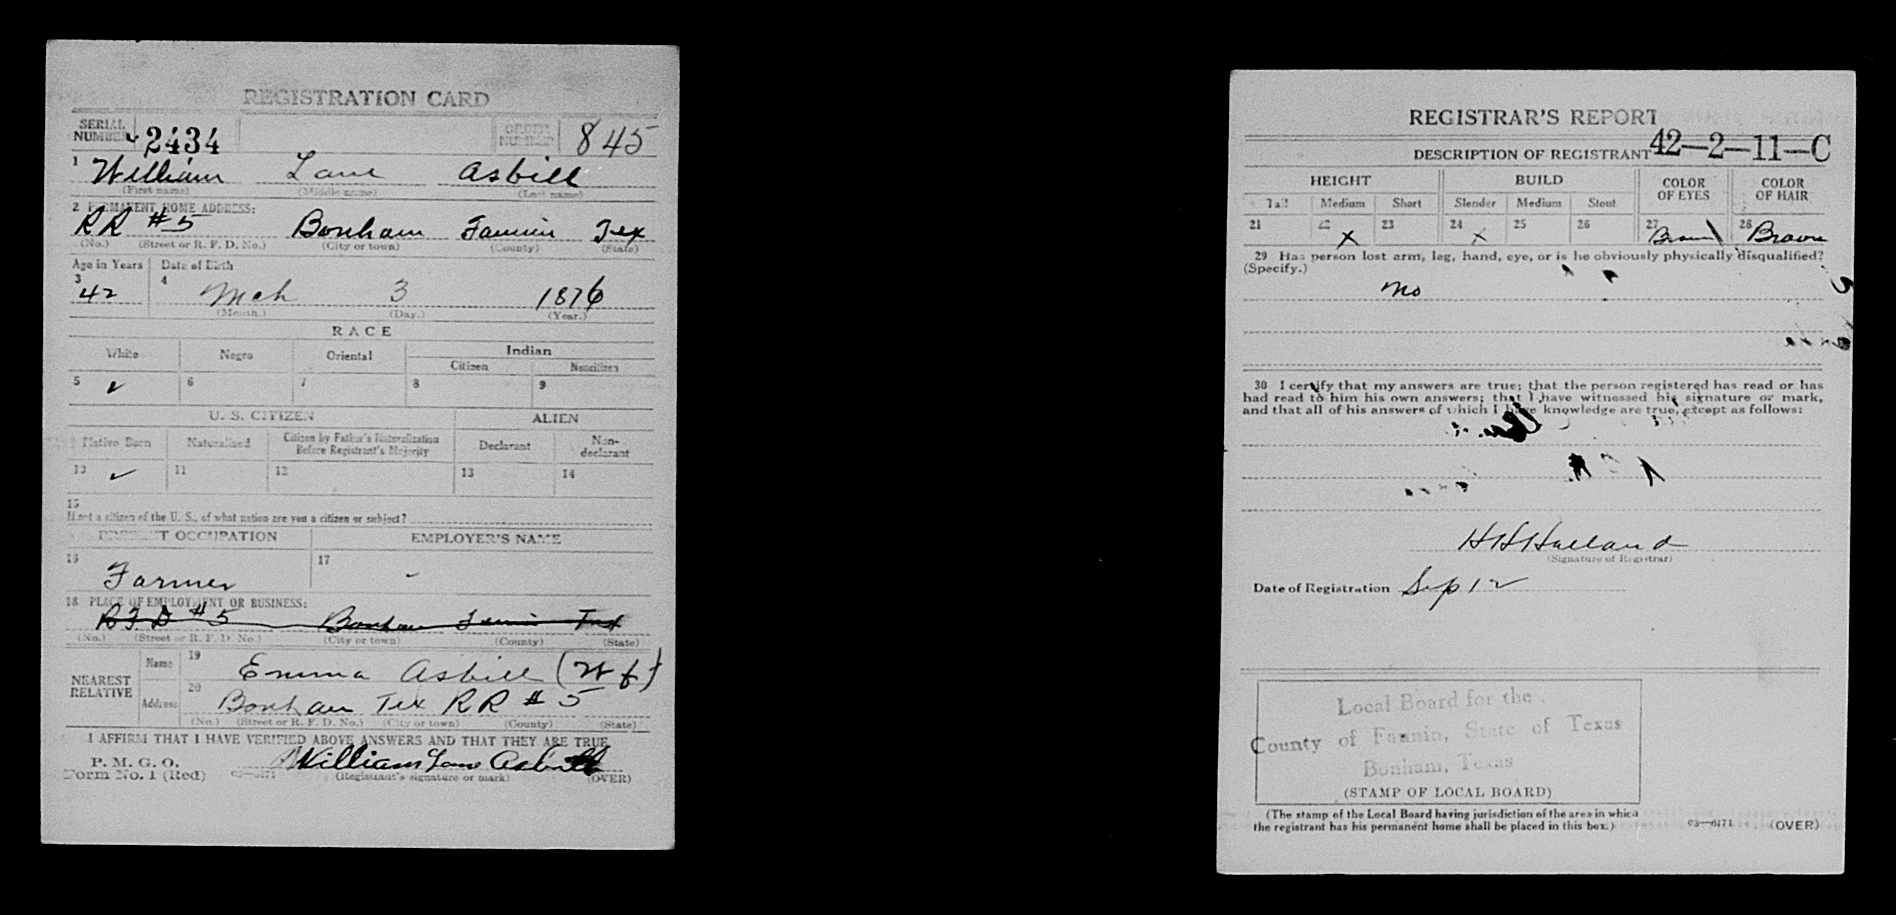 REGISTRATION CARD
SERIAL NUMBER 2434 ORDER NUMBER 845
1 William Lane Asbill
(First name) (Middle name) (Last name)
2 PERMANENT HOME ADDRESS:
RR #5 Bonham Fannin Tex
(No.) (Street or R. F. D. No.) (City or town) (County) (State)
Age in Years Date of Birth
3 42 4 Mch 3 1876
(Month.) (Day.) (Year.)
RACE
White Negro Oriental Indian
Citizen Noncitizen
5 ✓ 6 7 8 9
U. S. CITIZEN ALIEN
Native Born Naturalized Citizen by Father's Naturalization Before Registrant's Majority Declarant Non-declarant
10 ✓ 11 12 13 14
15
If not a citizen of the U. S., of what nation are you a citizen or subject?
PRESENT OCCUPATION EMPLOYER'S NAME
16 Farmer 17 -
18 PLACE OF EMPLOYMENT OR BUSINESS:
RFD #5 Bonham Fannin Tex
(No.) (Street or R. F. D. No.) (City or town) (County) (State)
NEAREST RELATIVE Name 19 Emma Asbill (Wf)
Address 20 Bonham Tex RR #5
(No.) (Street or R. F. D. No.) (City or town) (County) (State)
I AFFIRM THAT I HAVE VERIFIED ABOVE ANSWERS AND THAT THEY ARE TRUE
P. M. G. O.
Form No. 1 (Red) 03—6171 William Lane Asbill
(Registrant's signature or mark) (OVER)
REGISTRAR'S REPORT
42—2—11—C
DESCRIPTION OF REGISTRANT
HEIGHT BUILD COLOR OF EYES COLOR OF HAIR
Tall Medium Short Slender Medium Stout
21 22 X 23 24 X 25 26 27 Brown 28 Brown
29 Has person lost arm, leg, hand, eye, or is he obviously physically disqualified?
(Specify.)
No
30 I certify that my answers are true; that the person registered has read or has
had read to him his own answers; that I have witnessed his signature or mark,
and that all of his answers of which I have knowledge are true, except as follows:
H H Holland
(Signature of Registrar)
Date of Registration Sep 12
Local Board for the
County of Fannin, State of Texas
Bonham, Texas
(STAMP OF LOCAL BOARD)
(The stamp of the Local Board having jurisdiction of the area in which
the registrant has his permanent home shall be placed in this box.)
03—6171 (OVER)